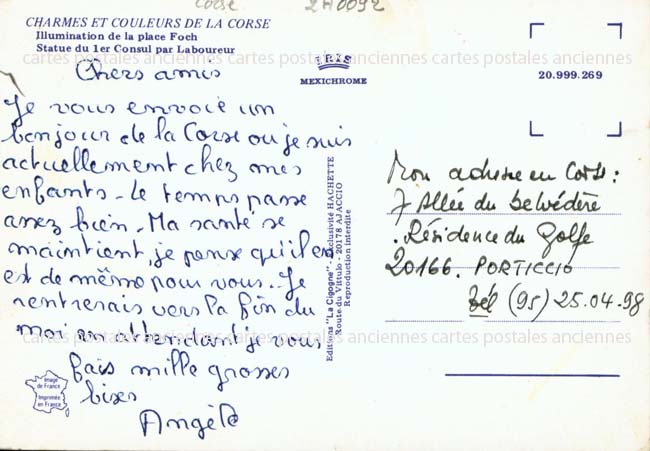 Corse 2A0092
CHARMES ET COULEURS DE LA CORSE
Illumination de la place Foch
Statue du 1er Consul par Laboureur
cartes postales anciennes cartes postales anciennes cartes postales anciennes
IRIS
MEXICHROME
20.999.269
Chers amis
Je vous envoie un
bonjour de la Corse ou je suis
actuellement chez mes
enfants - le temps passe
assez bien - Ma santé se
maintient, je pense qu'il en
est de même pour vous.. Je
rentrerais vers la fin du
moi en attendant je vous
fais mille grosses
bises
Angèle
Editions "La Cigogne" - Exclusivité HACHETTE
Route du Vittulo - 20178 AJACCIO
Reproduction interdite
Mon adresse en Corse :
7 Allée du Belvédère
Résidence du Golfe
20166. PORTICCIO
tél (95) 25.04.98
cartes postales anciennes cartes postales anciennes cartes postales anciennes
Image
de France
Imprimée
en France